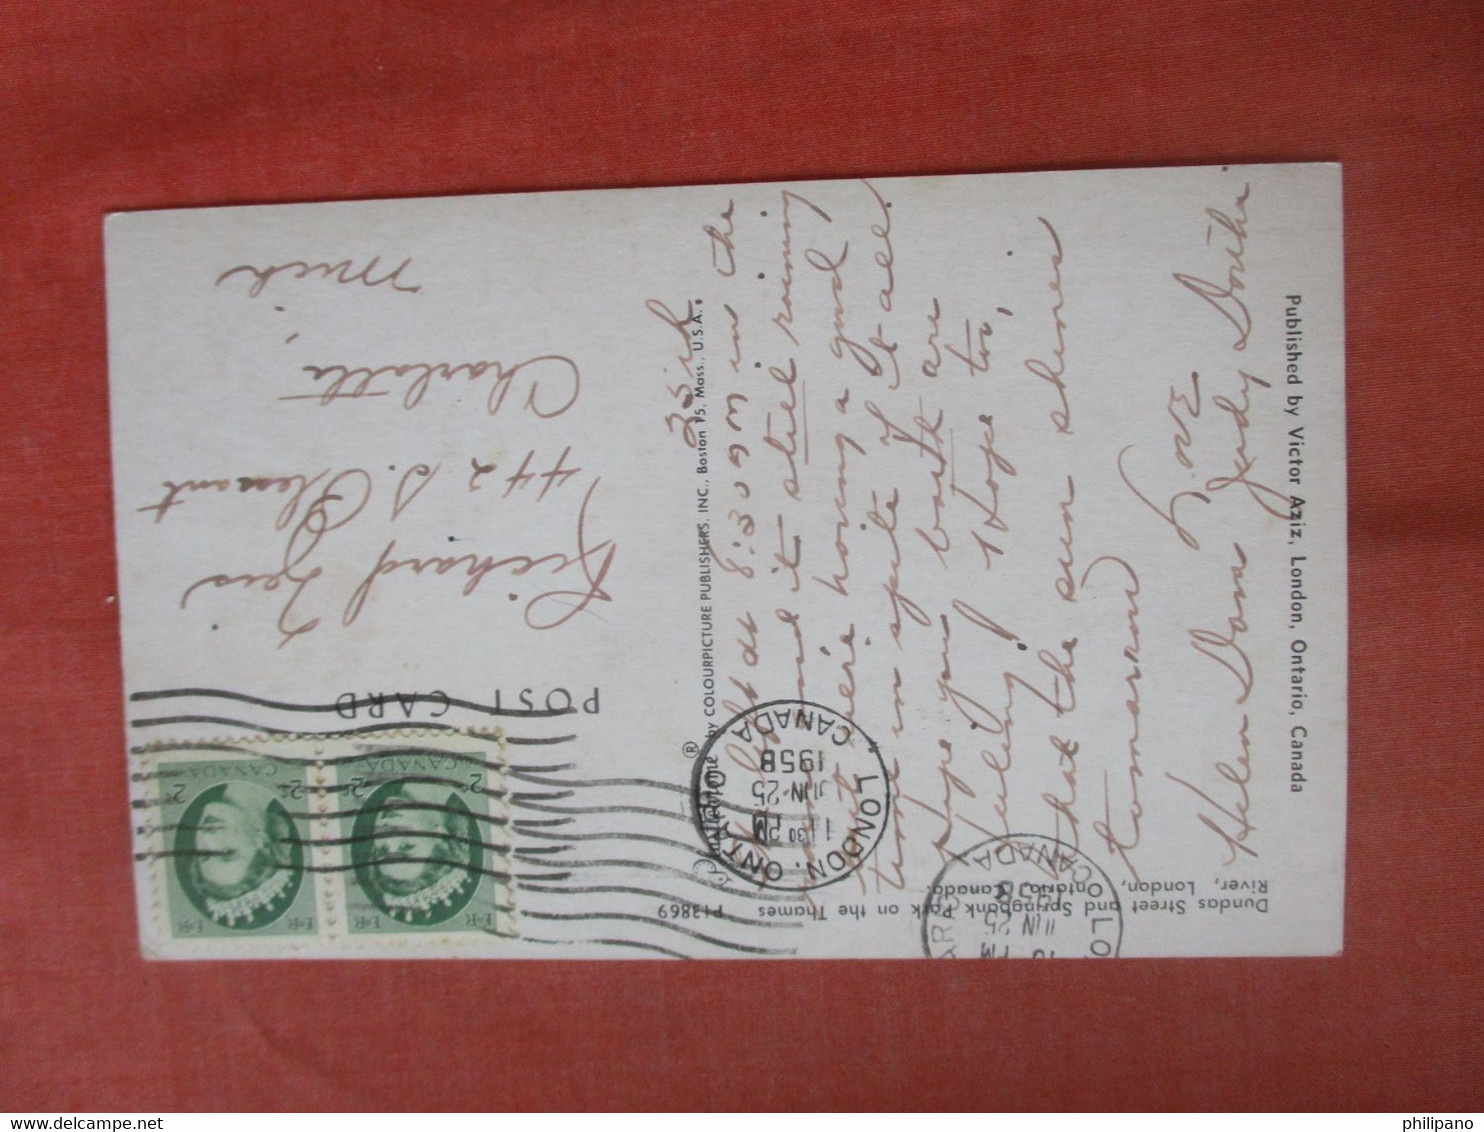 Published by Victor Aziz, London, Ontario, Canada
25th
We left at 8:30 am in the
and it still raining
but we're having a good
time in spite of it all.
Hope you both are
feeling I Hope too,
that the sun shines
tomarrow
LOVE
Helen Dom Judy Dorthe
Dundas Street and Springbank Park on the Thames
River, London, Ontario, Canada.
P13869
Plastichrome ® by COLOURPICTURE PUBLISHERS, INC., Boston 15, Mass., U.S.A.
POST CARD
LONDON, ONTARIO
11 30 PM
JUN 25
1958
CANADA
LO
PM
JUN 25
1958
CANADA
CANADA
2 2
E R
CANADA
2 2
E R
Richard Zeis
442 S. Plesant
Charlotte,
Mich
philipano